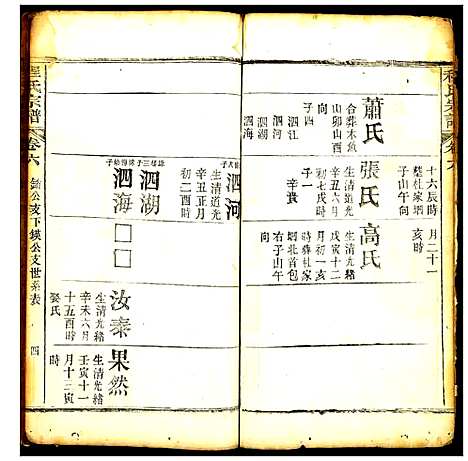 程氏宗譜
卷六
十六辰時
葬杜家壪
子山午向
亥時
月二十一
蕭氏
合葬木魚
山卯山酉
向
子四
泗江
泗河
泗湖
泗海
張氏
生清道光
辛丑六月
初七戌時
子一
辛貴
高氏
生清光緒
戊寅十二
月初一亥
時葬杜家
壪北首包
右子山午
向
泗河
生清道光
辛丑正月
初二酉時
泗湖
泗海
□
□
汝泰
生清光緒
辛未六月
十五酉時
娶氏
果然
生清光緒
壬寅十一
月十三寅
時
程氏宗譜
卷六
公支下鍈公支世系表
四